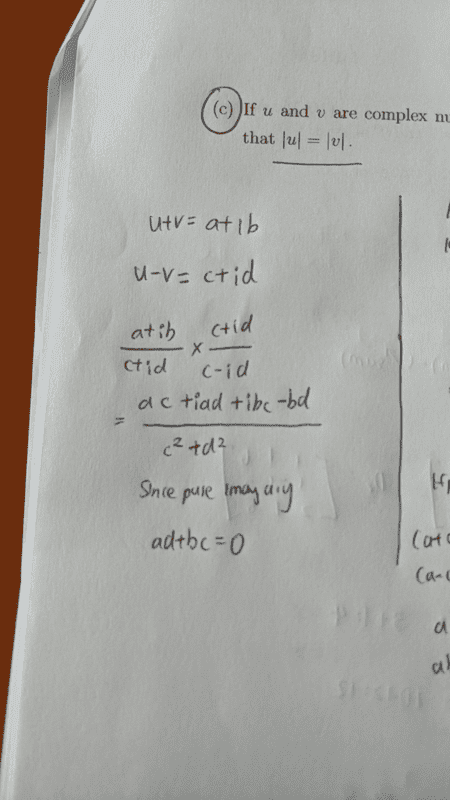 (c) If u and v are complex
that |u| = |v|.
u+v = a+ib
u-v = c+id
a+ib / c+id × c+id / c-id
= ac +iad +ibc -bd / c² +d²
Since pure imaginary
ad+bc = 0
(a+
(a-
a